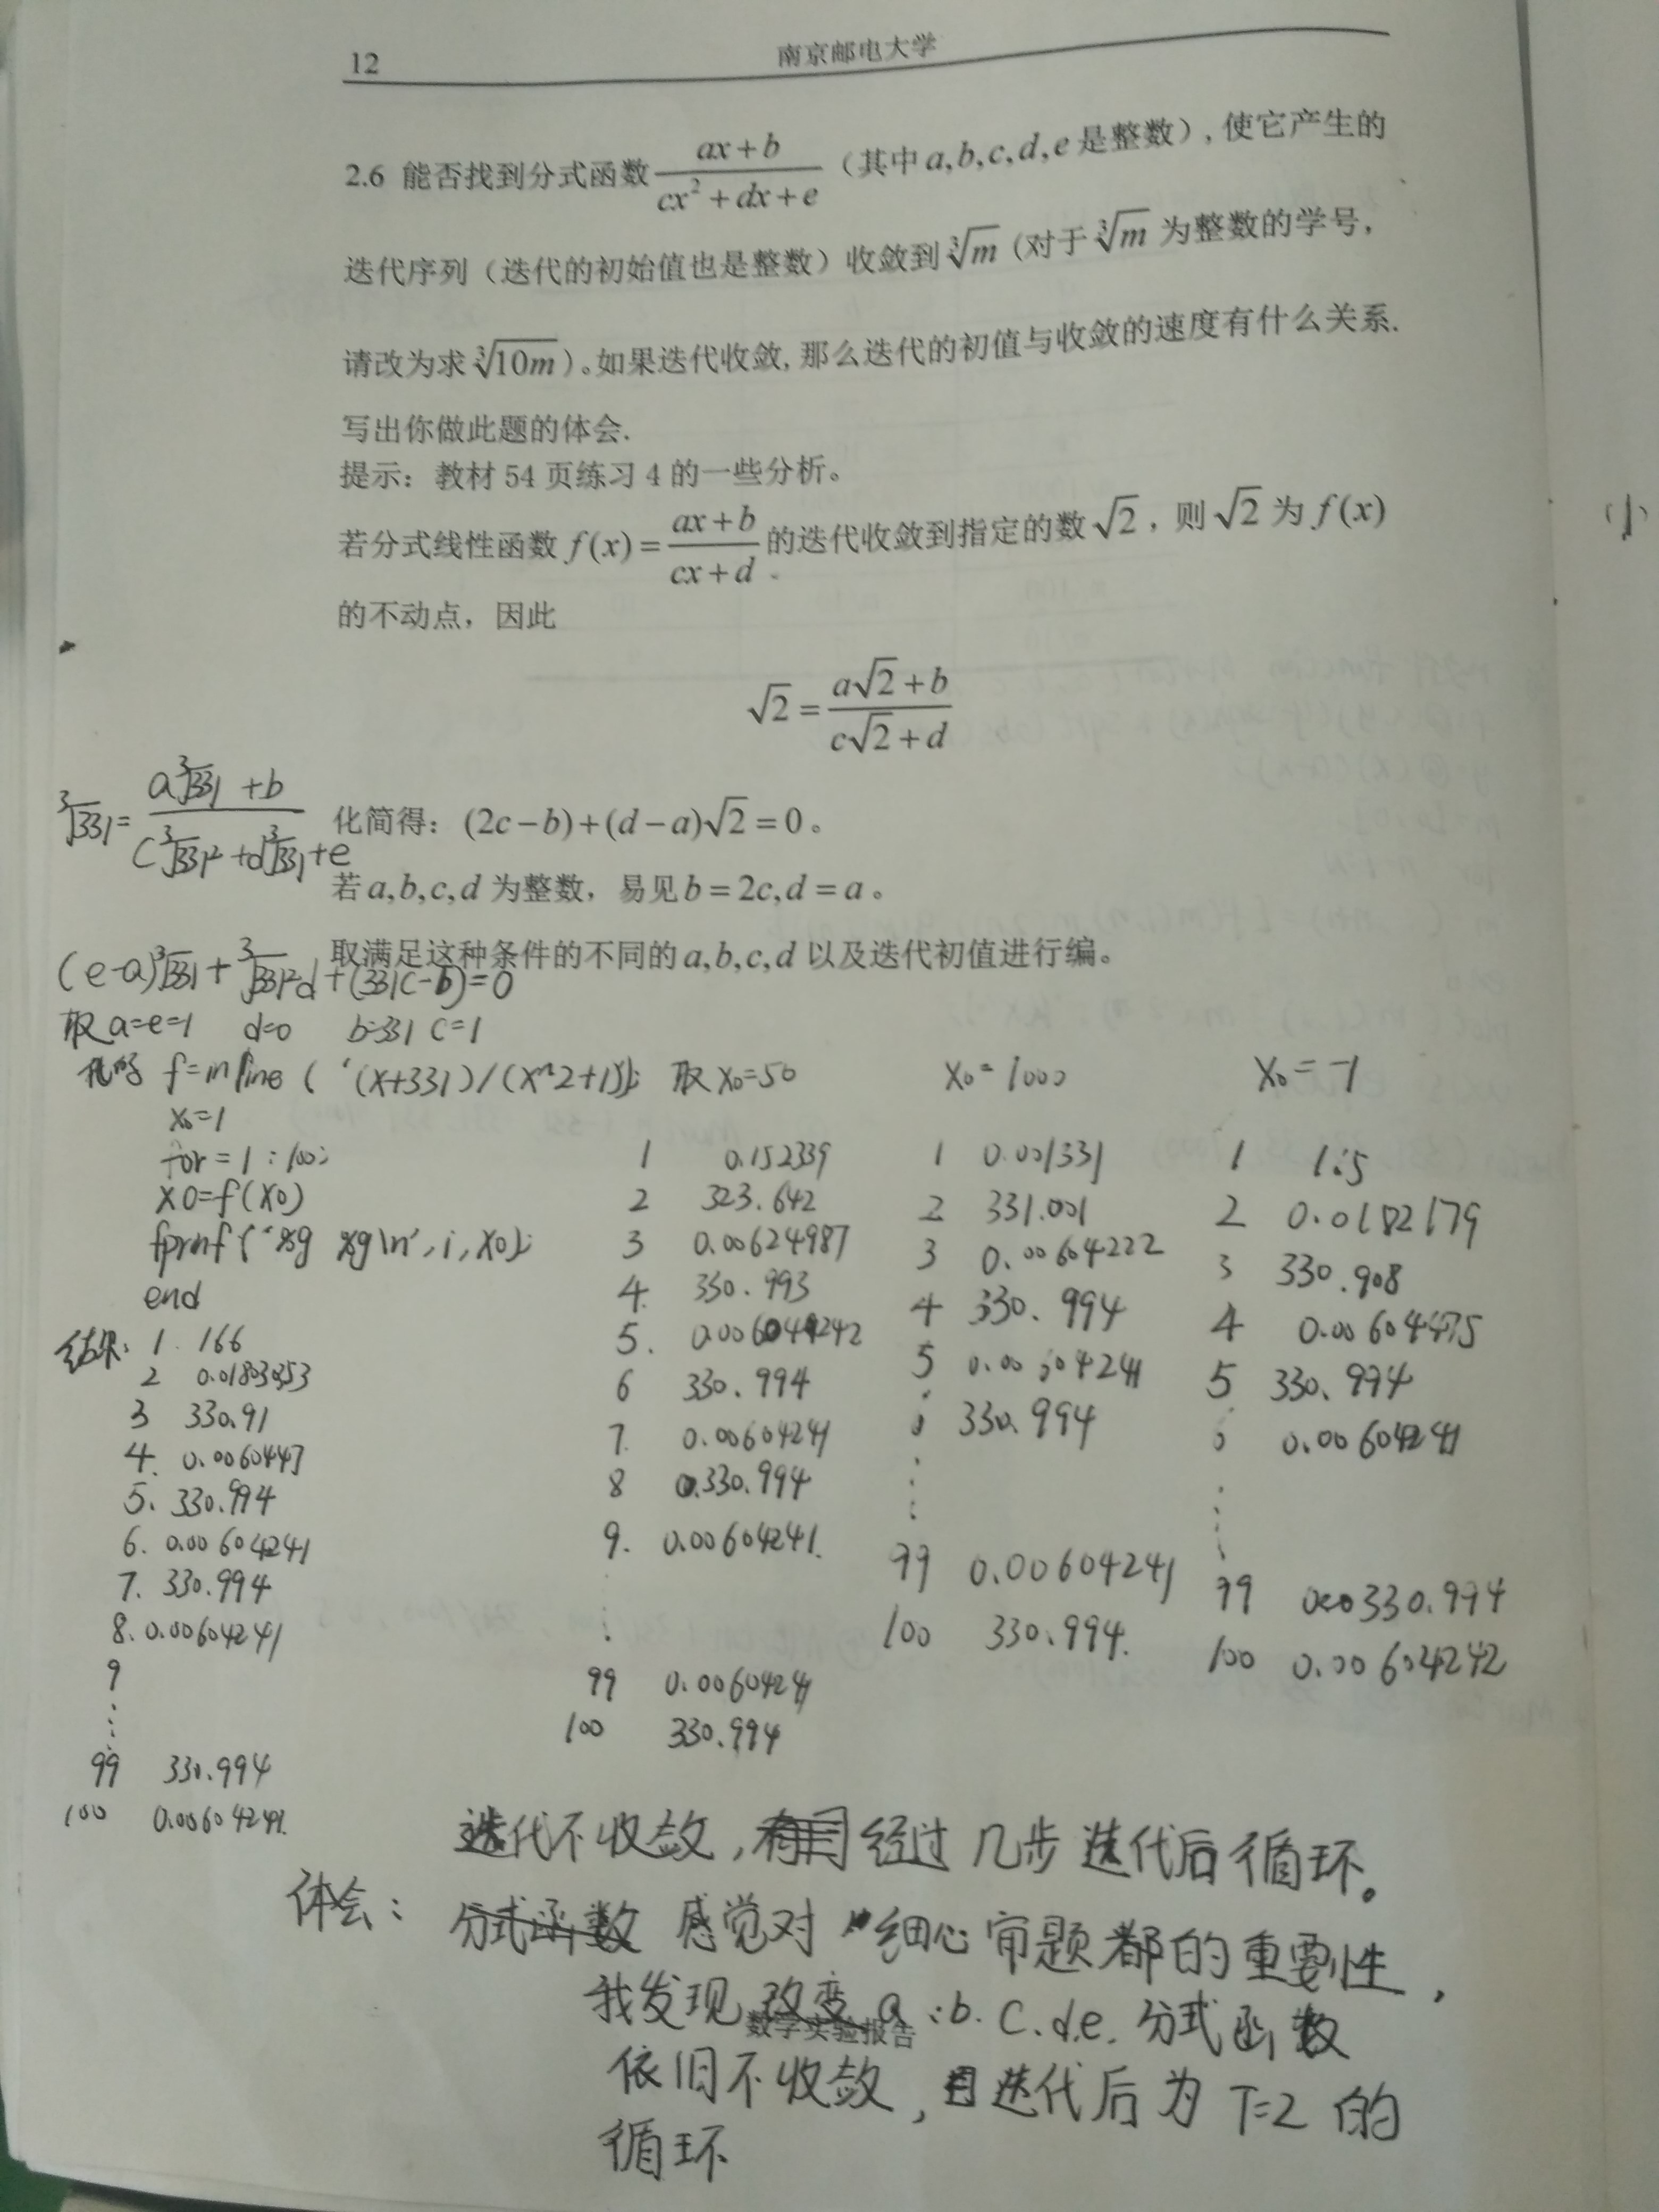 12
南京邮电大学
2.6 能否找到分式函数 (ax+b)/(cx²+dx+e) （其中 a,b,c,d,e 是整数）, 使它产生的
迭代序列（迭代的初始值也是整数）收敛到 ∛m (对于 ∛m 为整数的学号,
请改为求 ∛10m )。如果迭代收敛, 那么迭代的初值与收敛的速度有什么关系.
写出你做此题的体会.
提示：教材 54 页练习 4 的一些分析。
若分式线性函数 f(x) = (ax+b)/(cx+d) 的迭代收敛到指定的数 √2 ，则 √2 为 f(x)
的不动点，因此
√2 = (a√2+b)/(c√2+d)
化简得：(2c−b)+(d−a)√2=0 。
若 a,b,c,d 为整数，易见 b=2c,d=a 。
取满足这种条件的不同的 a,b,c,d 以及迭代初值进行编。
∛331 = (a∛331 +b)/(c∛331² +d∛331 +e)
(e-a)∛331 + ∛331²d +(331c-b)=0
取 a=e=1 d=0 b=331 c=1
f=inline ( '(x+331)/(x^2+1)');
x0=1
for =1:100;
x0=f(x0)
fprinf('%g %g\n', i, x0);
end
结果: 1 166
2 0.0180353
3 330.91
4. 0.0060447
5. 330.994
6. 0.00604241
7. 330.994
8. 0.00604241
9
⋮
99 330.994
100 0.00604241.
取 x0=50
1 0.152339
2 323.642
3 0.00624987
4. 330.993
5. 0.00604242
6 330.994
7. 0.00604241
8 330.994
9. 0.00604241.
⋮
99 0.00604241
100 330.994
x0=1000
1 0.001331
2 331.001
3 0.00604222
4 330.994
5 0.00604241
330.994
⋮
99 0.00604241
100 330.994.
x0=-1
1 1.5
2 0.0182179
3 330.908
4 0.00604475
5 330.994
6 0.00604241
⋮
99 330.994
100 0.00604242
迭代不收敛, 经过几步迭代后循环。
体会: 分式函数 感觉对 细心审题都的重要性,
我发现 改变 a.b.c.d.e. 分式函数
依旧不收敛, 且迭代后为 T=2 的
循环
数学实验报告